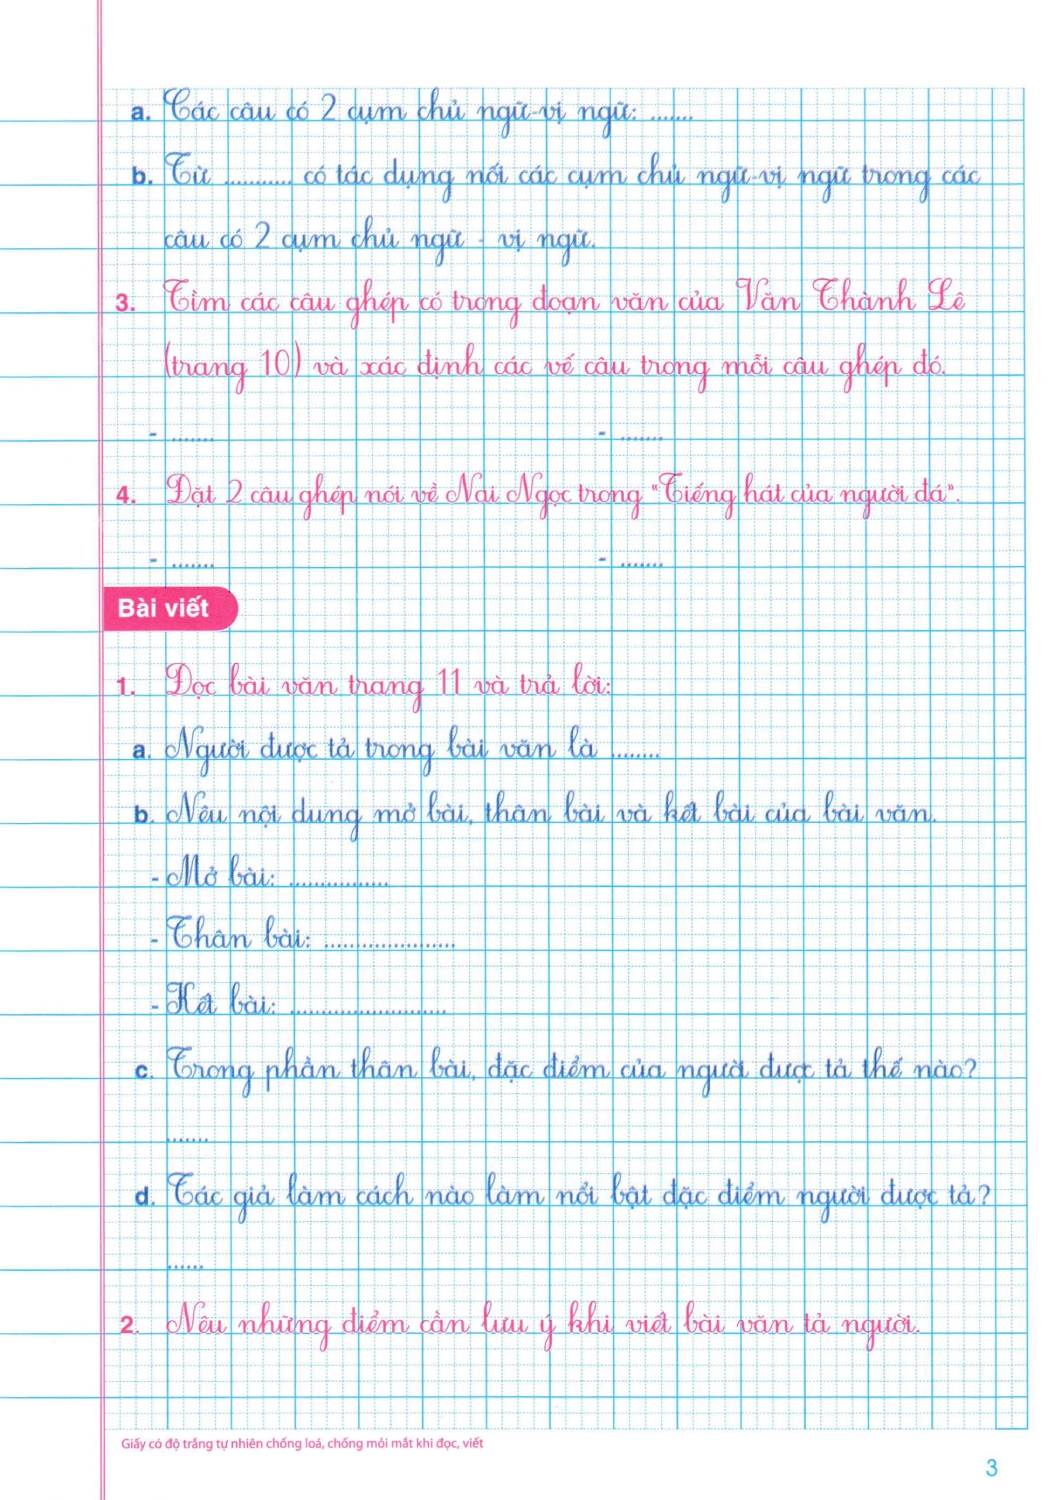 a. Các câu có 2 cụm chủ ngữ-vị ngữ: .......
b. Từ ........... có tác dụng nối các cụm chủ ngữ-vị ngữ trong các
câu có 2 cụm chủ ngữ - vị ngữ.
3. Tìm các câu ghép có trong đoạn văn của Văn Thành Lê
(trang 10) và xác định các vế câu trong mỗi câu ghép đó.
- ....... - .......
4. Đặt 2 câu ghép nói về Nai Ngọc trong "Tiếng hát của người đá".
- ....... - .......
Bài viết
1. Đọc bài văn trang 11 và trả lời:
a. Người được tả trong bài văn là ........
b. Nêu nội dung mở bài, thân bài và kết bài của bài văn.
- Mở bài: ................
- Thân bài: .....................
- Kết bài: .........................
c. Trong phần thân bài, đặc điểm của người được tả thế nào?
.......
d. Tác giả làm cách nào làm nổi bật đặc điểm người được tả?
......
2. Nêu những điểm cần lưu ý khi viết bài văn tả người.
Giấy có độ trắng tự nhiên chống loá, chống mỏi mắt khi đọc, viết
3